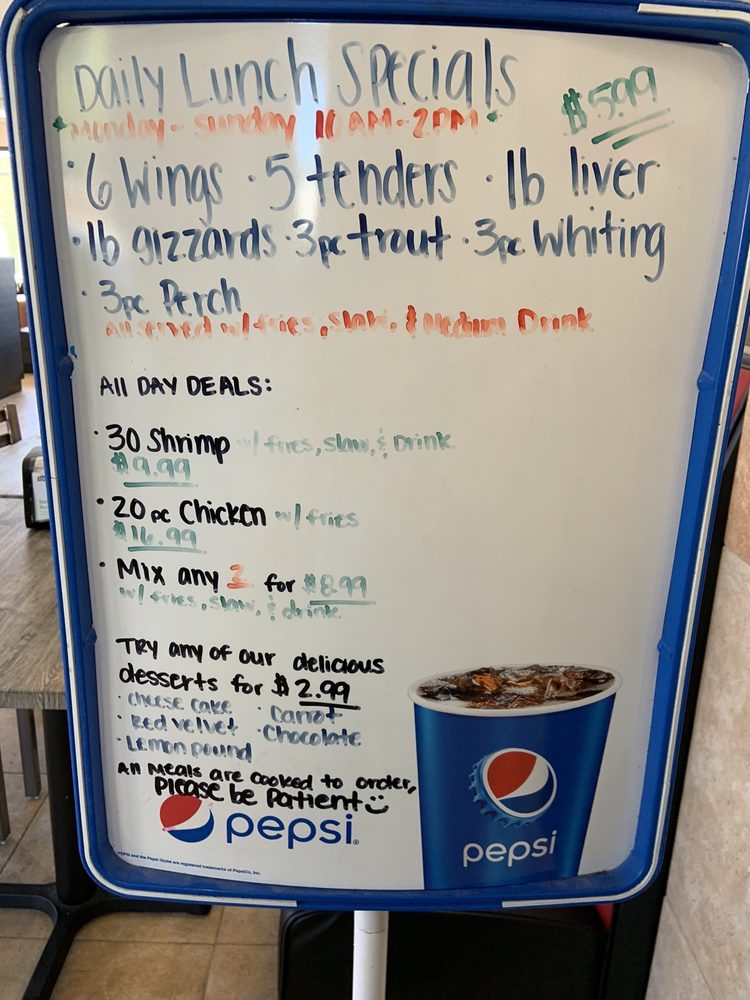 Daily Lunch Specials $5.99
Monday - Sunday 10 AM - 2 PM
· 6 Wings · 5 tenders · 1b liver
· 1b gizzards · 3pc trout · 3pc Whiting
· 3pc Perch
All served w/ fries, slaw, & Medium Drink
All DAY DEALS:
· 30 Shrimp w/ fries, slaw, & Drink
$9.99
· 20 pc Chicken w/ fries
$16.99
· Mix any 2 for $8.99
w/ fries, slaw, & drink
TRY any of our delicious
desserts for $2.99
· cheese cake · Carrot
· Red velvet · Chocolate
· Lemon pound
All Meals are cooked to order,
Please be Patient
pepsi®
PEPSI and the Pepsi Globe are registered trademarks of PepsiCo, Inc.
pepsi